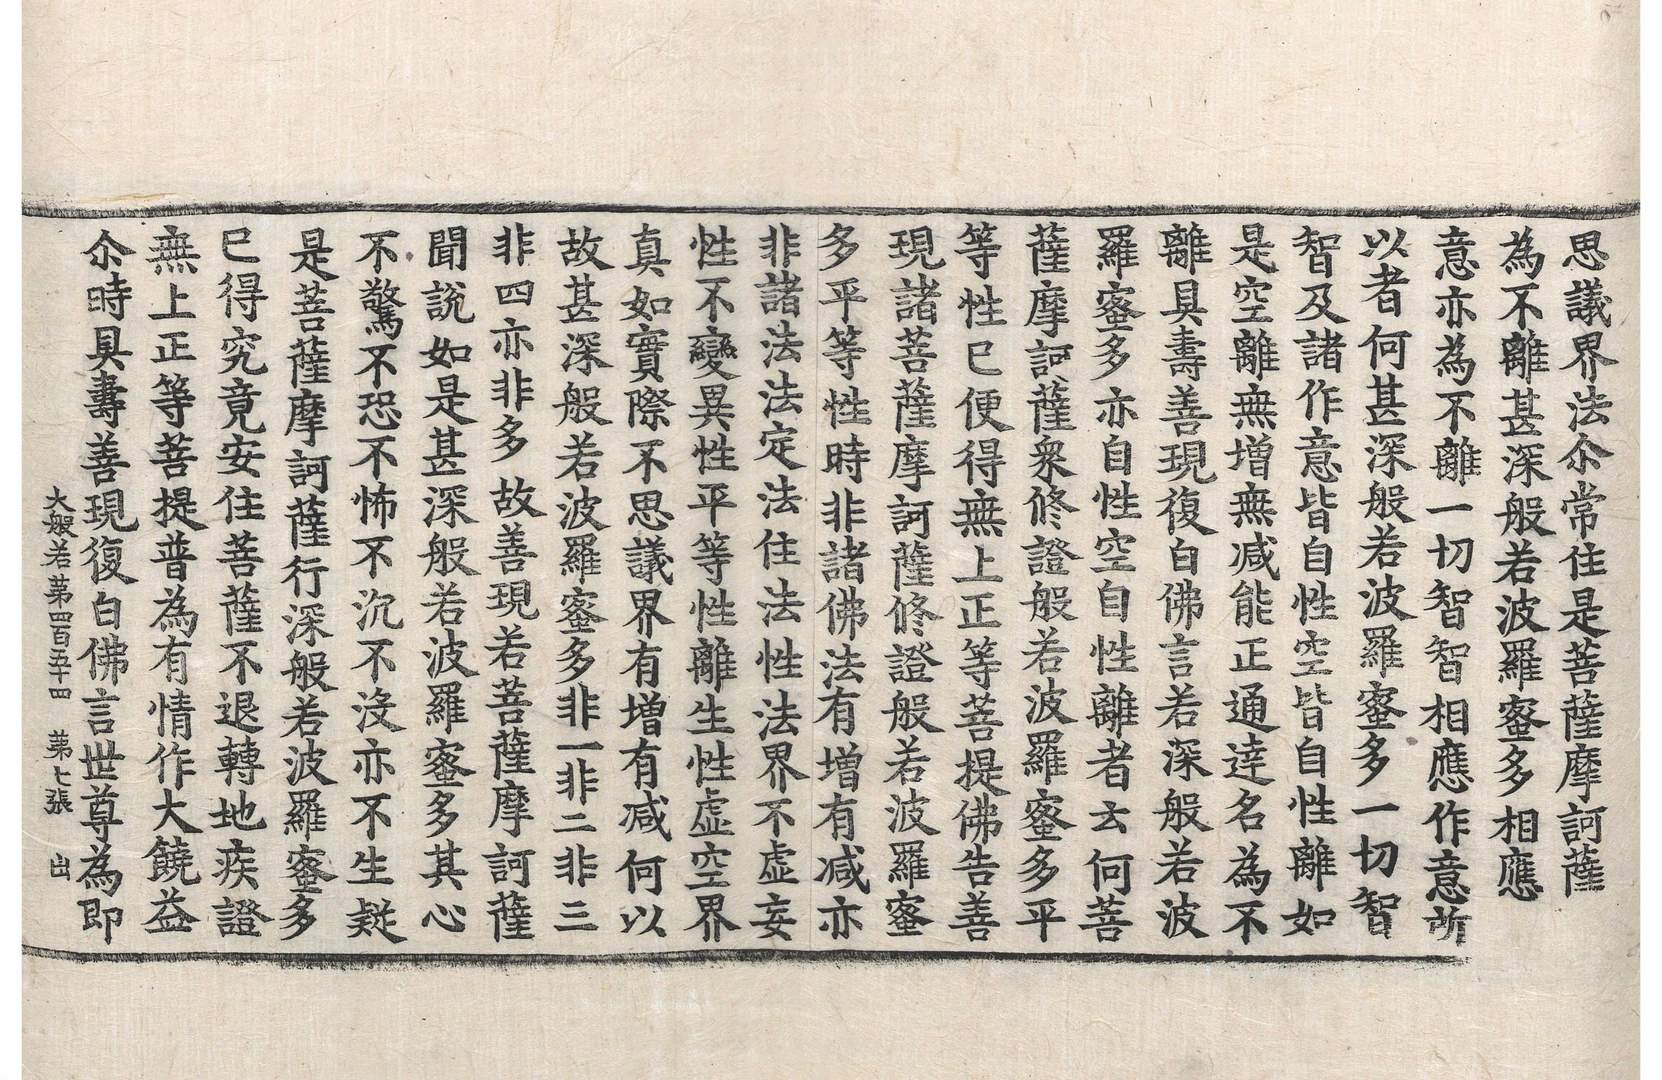 思議界法尒常住是菩薩摩訶薩
為不離甚深般若波羅蜜多相應
意亦為不離一切智智相應作意所
以者何甚深般若波羅蜜多一切智
智及諸作意皆自性空皆自性離如
是空離無增無减能正通達名為不
離具壽善現復白佛言若深般若波
羅蜜多亦自性空自性離者云何菩
薩摩訶薩衆修證般若波羅蜜多平
等性已便得無上正等菩提佛告善
現諸菩薩摩訶薩修證般若波羅蜜
多平等性時非諸佛法有增有减亦
非諸法法定法住法性法界不虛妄
性不變異性平等性離生性虛空界
真如實際不思議界有增有减何以
故甚深般若波羅蜜多非一非二非三
非四亦非多故善現若菩薩摩訶薩
聞說如是甚深般若波羅蜜多其心
不驚不恐不怖不沉不沒亦不生疑
是菩薩摩訶薩行深般若波羅蜜多
已得究竟安住菩薩不退轉地疾證
無上正等菩提普為有情作大饒益
尒時具壽善現復白佛言世尊為即
大般若第四百五十四 第七張 出